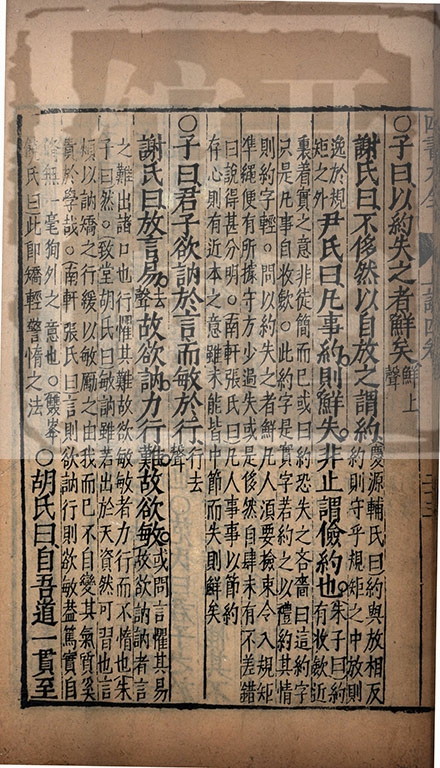 四書大全 論語四卷 二三
〇子曰以約失之者鮮矣
鮮上
聲
謝氏曰不侈然以自放之謂約
慶源輔氏曰約與放相反
約則守乎規矩之中放則
逸於規
矩之外
尹氏曰凡事約則鮮失非止謂儉約也
朱子曰約
有收歛近
裏着實之意非徒簡而已或曰約恐失之吝嗇曰這約字
只是凡事自收歛此約字是實字若約之以禮約其情
則約字輕。問以約失之者鮮凡人須要撿束令入規矩
準繩便有所據守方少過失或是侈然自肆未有不差錯
曰說得甚分明。南軒張氏曰凡人事事以節約
存心則有近本之意雖未能皆中節而失則鮮矣
〇子曰君子欲訥於言而敏於行
行去
聲
謝氏曰放言易
去
聲
故欲訥力行難故欲敏
或問言懼其易
故欲訥訥者言
之難出諸口也行懼其難故欲敏敏者力行而不惰也朱
子曰然。致堂胡氏曰敏訥雖若出於天資然可習也言
煩以訥矯之行緩以敏勵之由我而已不自變其氣質奚
貴於學哉。南軒張氏曰言則欲訥行則欲敏蓋篤實自
脩無一毫徇外之意也。雙峯
饒氏曰此即矯輕警惰之法
〇胡氏曰自吾道一貫至